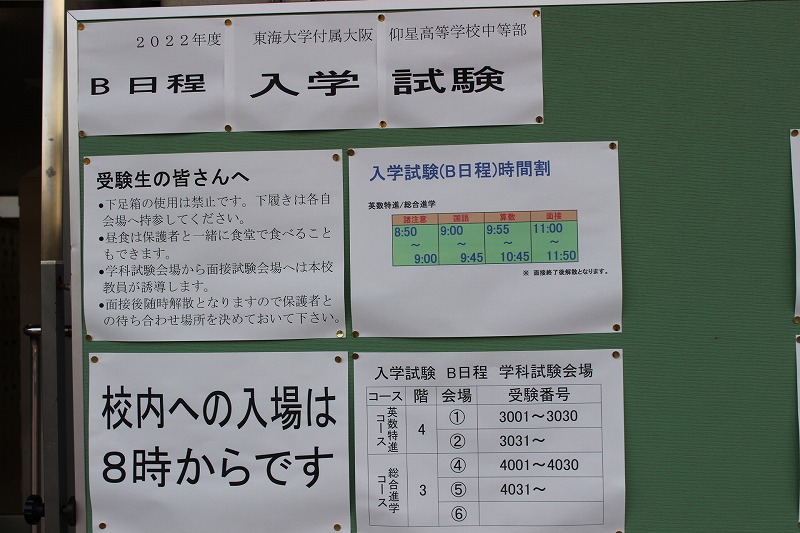 2022年度 東海大学付属大阪 仰星高等学校中等部
B日程 入学 試験
受験生の皆さんへ
●下足箱の使用は禁止です。下履きは各自
会場へ持参してください。
●昼食は保護者と一緒に食堂で食べること
もできます。
●学科試験会場から面接試験会場へは本校
教員が誘導します。
●面接後随時解散となりますので保護者と
の待ち合わせ場所を決めておいて下さい。
入学試験(B日程)時間割
英数特進/総合進学
諸注意 国語 算数 面接
8:50 9:00 9:55 11:00
～ ～ ～ ～
9:00 9:45 10:45 11:50
※ 面接終了後解散となります。
校内への入場は
8時からです
入学試験 B日程 学科試験会場
コース 階 会場 受験番号
英数特進コース 4 ① 3001～3030
② 3031～
総合進学コース 3 ④ 4001～4030
⑤ 4031～
⑥